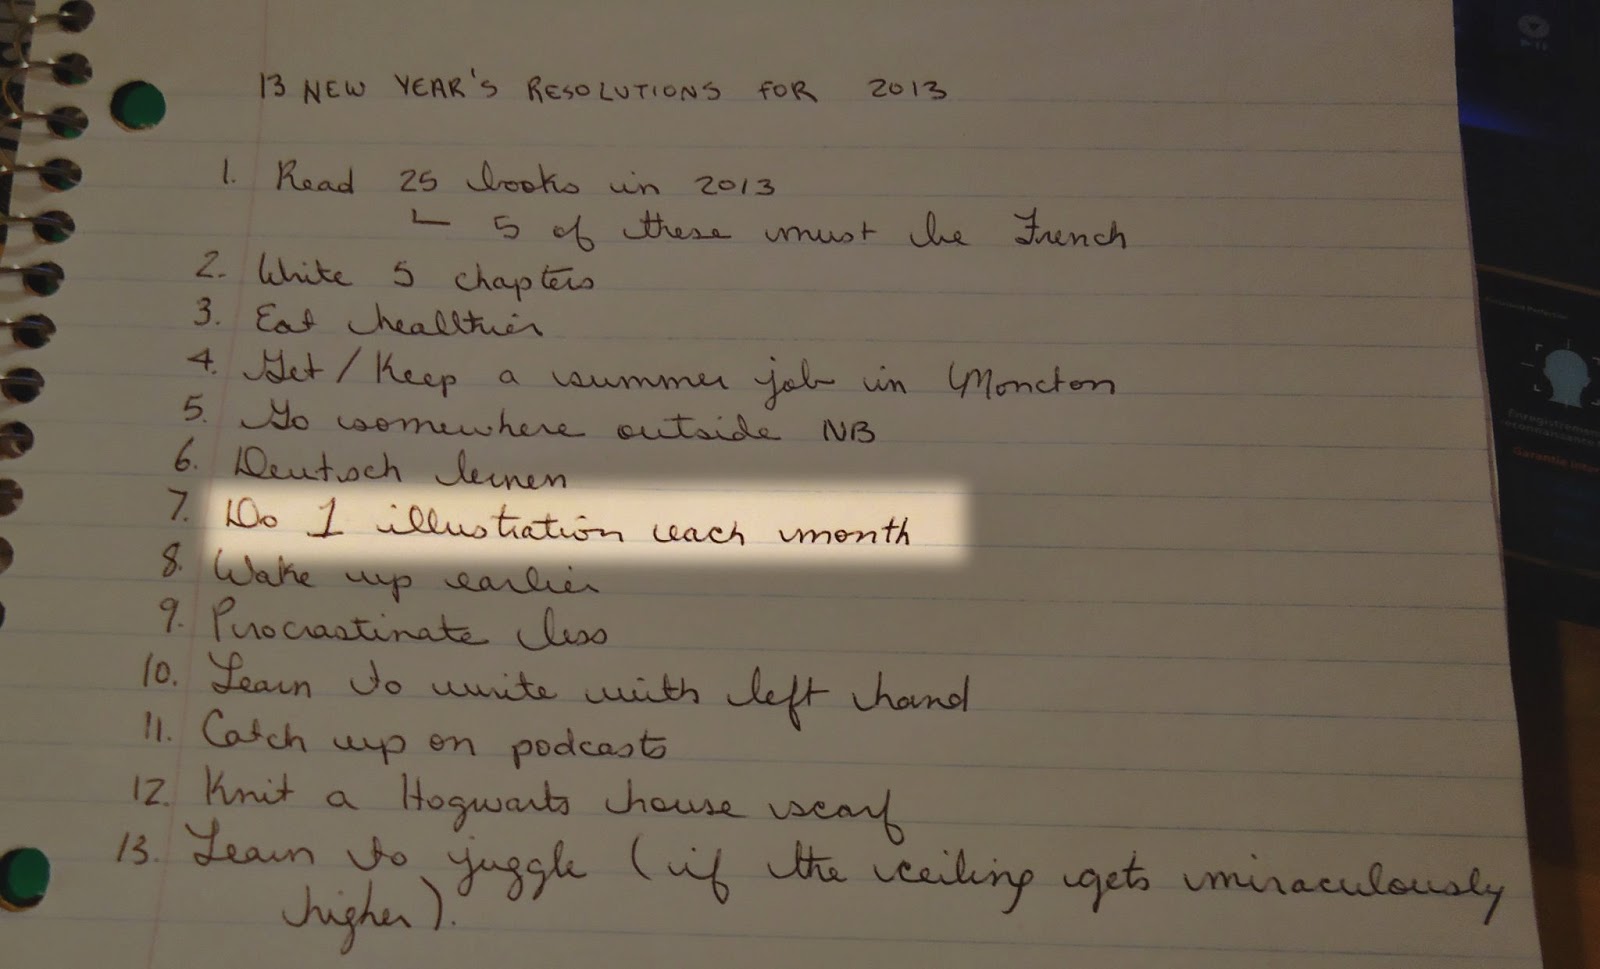 13 NEW YEAR'S RESOLUTIONS FOR 2013
1. Read 25 books in 2013
5 of these must be French
2. Write 5 chapters
3. Eat healthier
4. Get / Keep a summer job in Moncton
5. Go somewhere outside NB
6. Deutsch lernen
7. Do 1 illustration each month
8. Wake up earlier
9. Procrastinate less
10. Learn to write with left hand
11. Catch up on podcasts
12. Knit a Hogwarts house scarf
13. Learn to juggle (if the ceiling gets miraculously
higher).